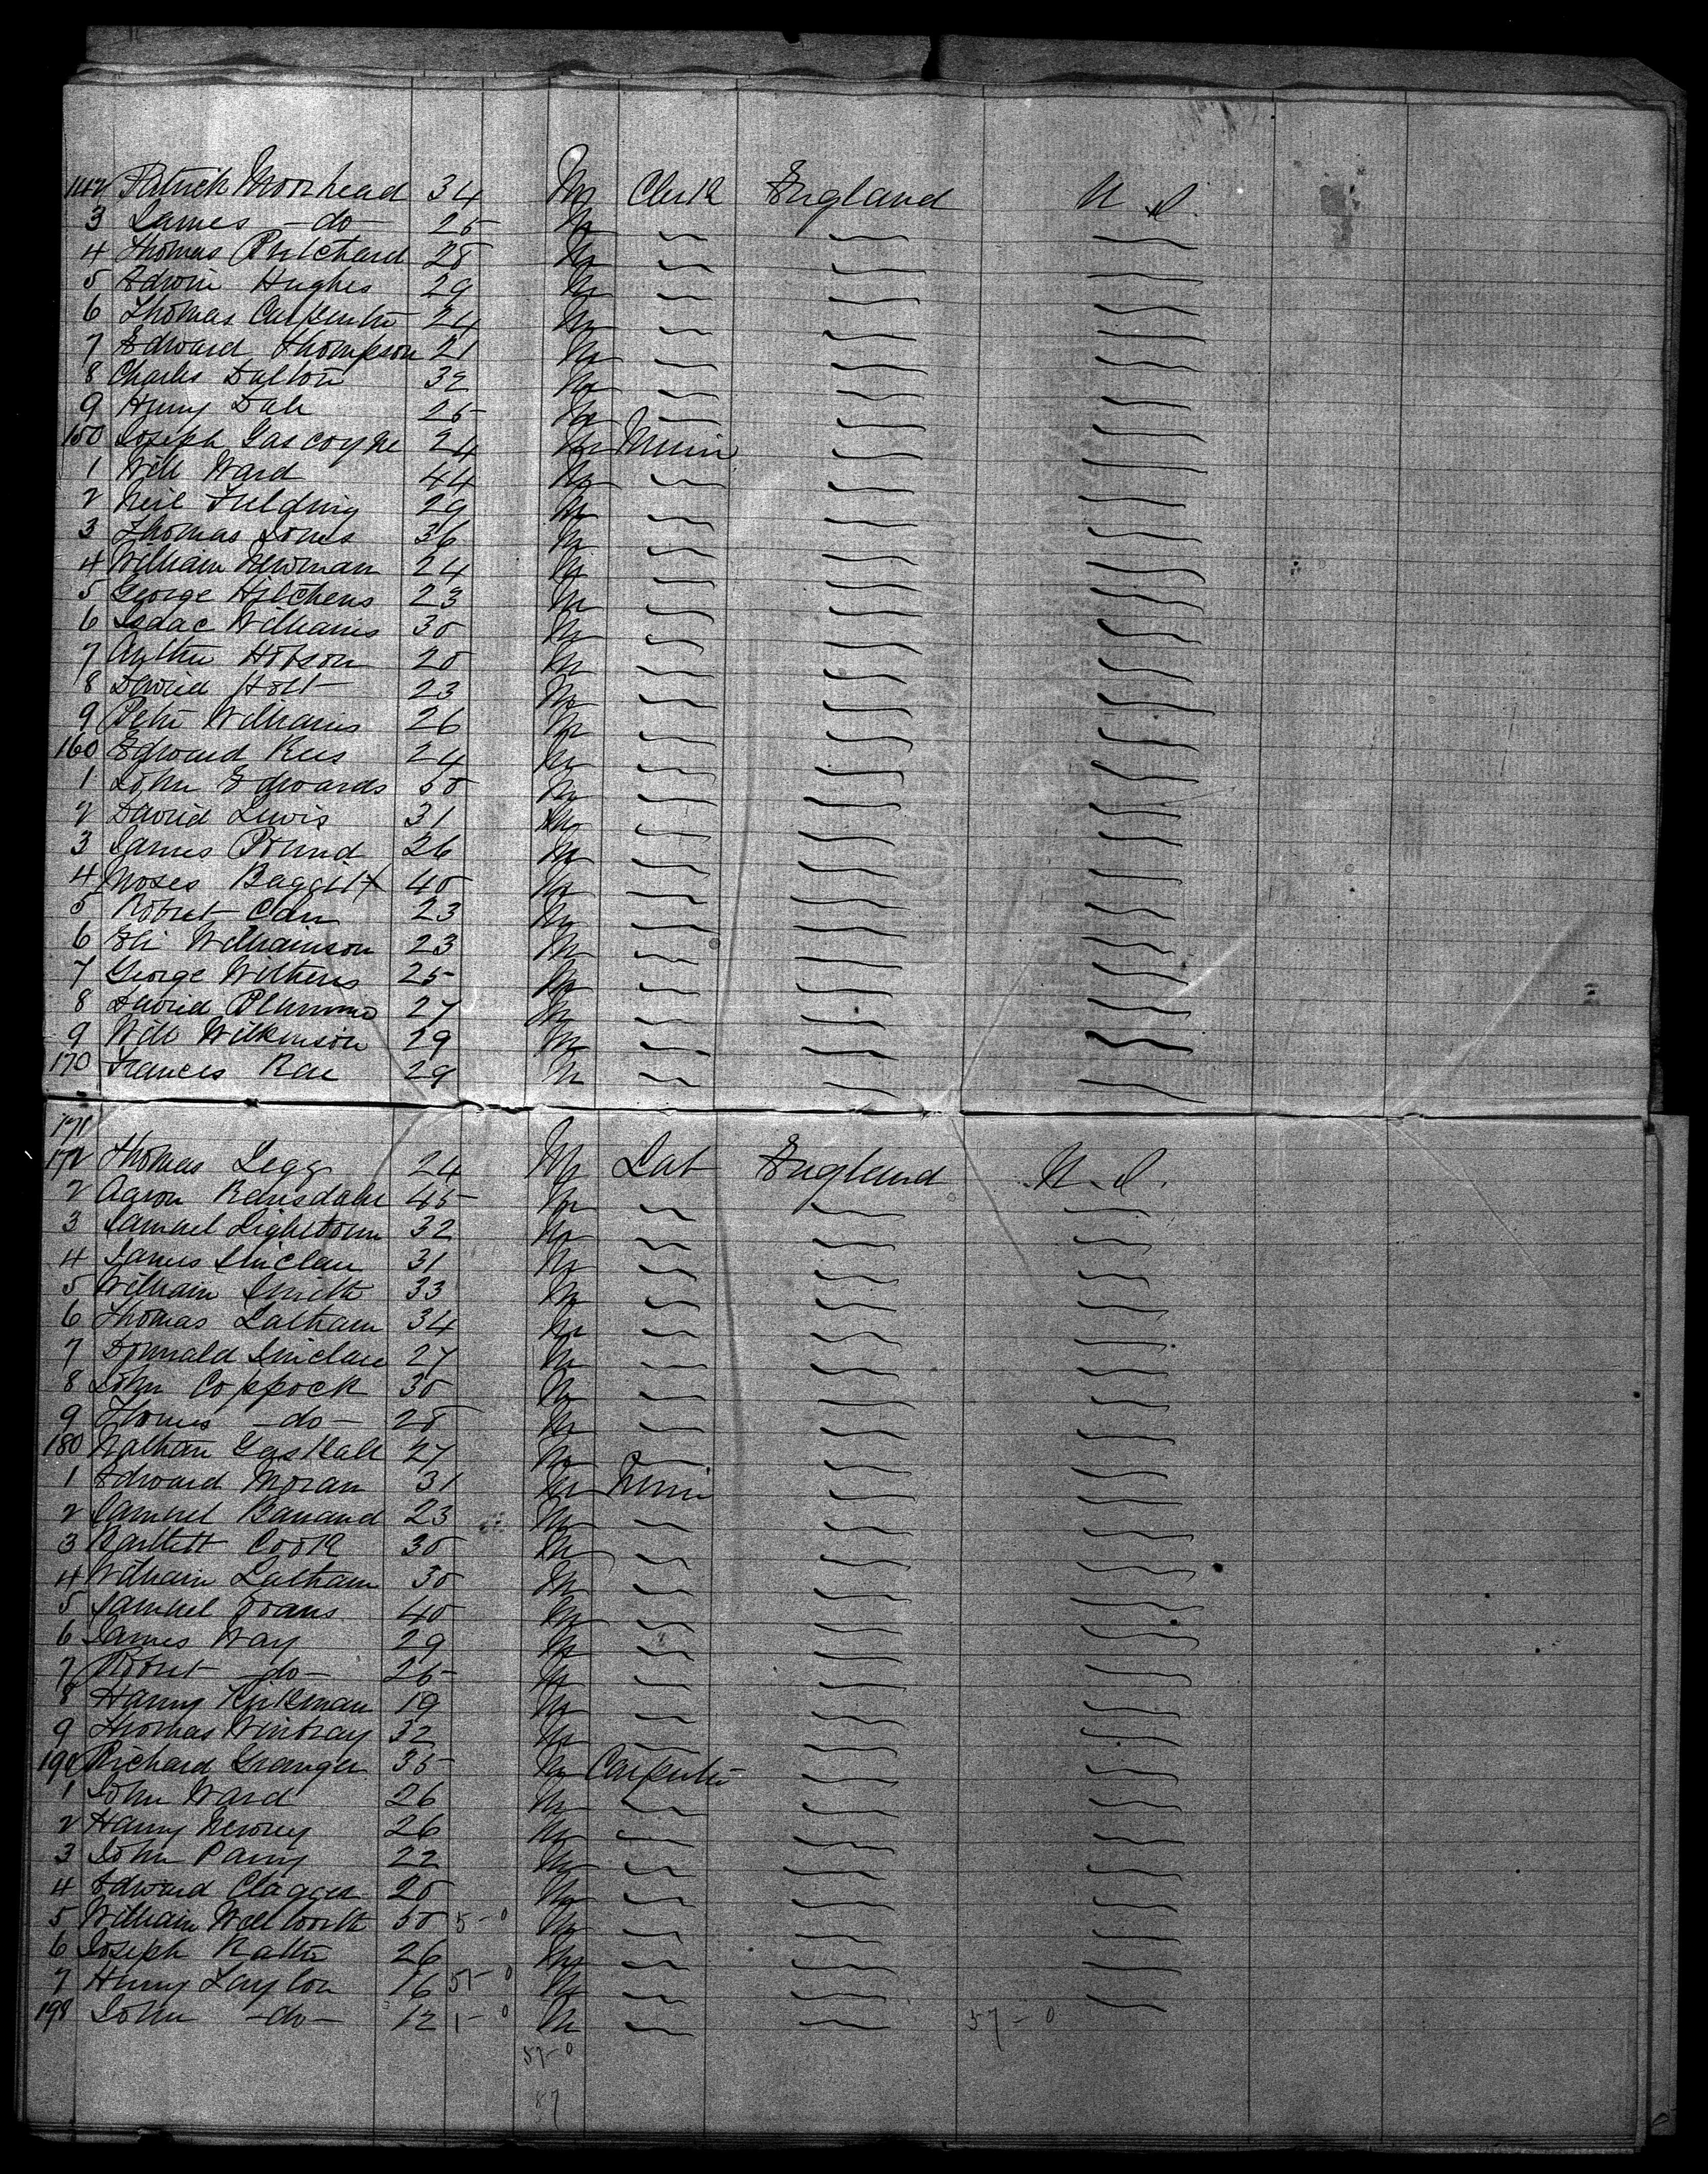 142 Patrick Moorhead 34 M Clerk England U S.
3 James -do- 25 M
4 Thomas Pritchard 28 M
5 Edwin Hughes 29 M
6 Thomas Carpenter 24 M
7 Edward Thompson 21 M
8 Charles Dalton 32 M
9 Henry Dale 25 M
150 Joseph Gascoyne 24 M Miner
1 Will Ward 44 M
2 Neil Fielding 29 M
3 Thomas Jones 36 M
4 William Newman 24 M
5 George Hitchens 23 M
6 Isaac Williams 30 M
7 Arthur Hobson 20 M
8 David Holt 23 M
9 Peter Williams 26 M
160 Edward Rees 24 M
1 John Edwards 50 M
2 David Lewis 31 M
3 James Pound 26 M
4 Moses 40 M
5 Robert 23 M
6 Eli Williamson 23 M
7 George Withers 25 M
8 David Plummer 27 M
9 Will Wilkinson 29 M
170 Frances Rae 29 M
171
172 Thomas Legg 24 M Lab England U.S.
2 Aaron Ramsdale 45 M
3 Samuel Lightbown 32 M
4 James Sinclair 31 M
5 William Smith 33 M
6 Thomas Latham 34 M
7 Donnald Sinclair 27 M
8 John Coppock 30 M
9 Thomas -do- 28 M
180 Nathan Gaskall 27 M
1 Edward Moran 31 M Miner
2 Samuel 23 M
3 Bartlett Cook 30 M
4 William Latham 30 M
5 Samuel Evans 40 M
6 James Way 29 M
7 Robert -do- 25 M
8 Harry Kirkman 19 M
9 Thomas 32 M
190 Richard Granger 35 M Carpenter
1 John Ward 26 M
2 Harry 26 M
3 John Parry 22 M
4 Edward 20 M
5 William 50 5-0 M
6 Joseph 26 M
7 Henry Taylor 16 51-0 M
198 John -do- 12 1-0 M 57-0
57-0
87